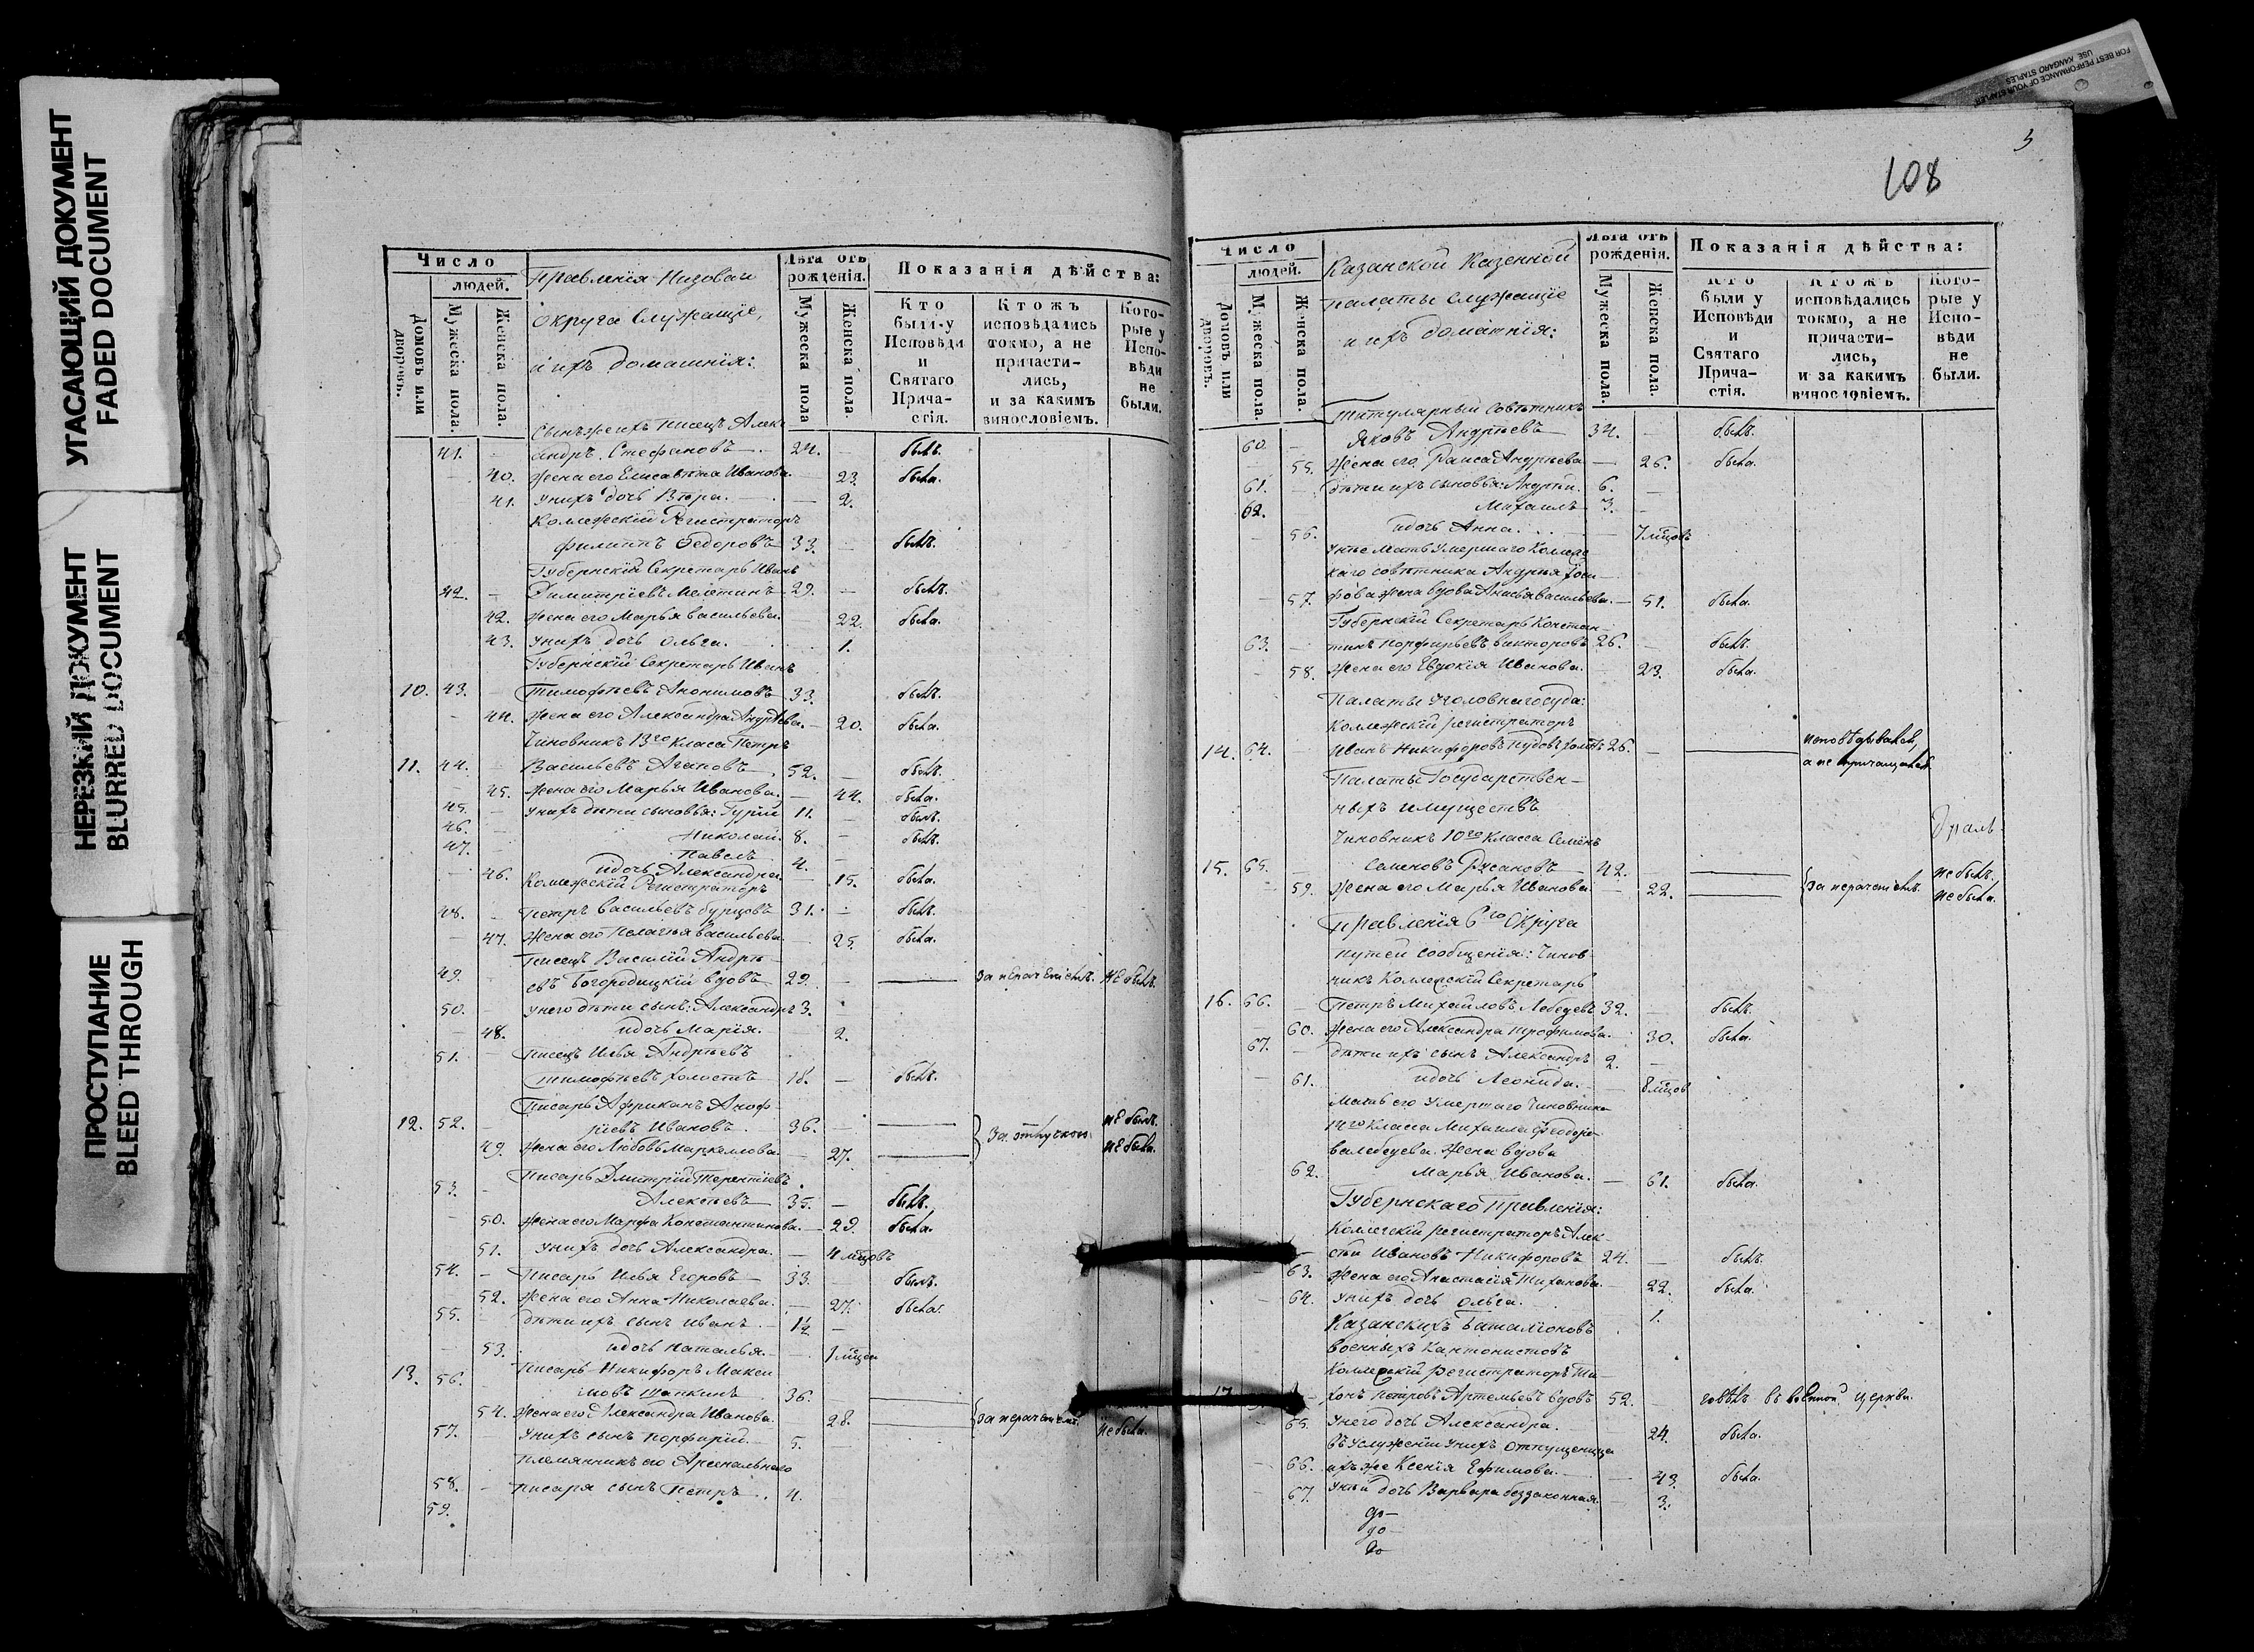 УГАСАЮЩИЙ ДОКУМЕНТ
FADED DOCUMENT
НЕРЕЗКИЙ ДОКУМЕНТ
BLURRED DOCUMENT
ПРОСТУПАНИЕ
BLEED THROUGH
FOR BEST PERFORMANCE OF YOUR STAPLER
USE KANGARO STAPLES
Число
людей.
Домовъ или дворовъ.
Мужеска пола.
Женска пола.
Правленія Низоваго
Округа Служащіе,
и ихъ домашнія:
Лѣта отъ рожденія.
Мужеска пола
Женска пола.
Показанія дѣйства:
Кто были у Исповѣди и Святаго Прича-стія.
Ктожъ исповѣдались токмо, а не причасти-лись, и за какимъ винословіемъ.
Кото-рые у Испо-вѣди не были.
Сынъ же ихъ писецъ Алек
41. – андръ Стефановъ 24. – былъ.
– 40. Жена его Елисавѣта Иванова – 23 была.
41. У нихъ дочь Вѣра. – 2.
Коллежскій Регистраторъ
Филиппъ Ѳедоровъ 33. – былъ.
Губернскій Секретарь Иванъ
42. – Димитріевъ 29. – былъ.
42. Жена его Марья Васильева. 22. была.
43. У нихъ дочь Ольга. 1.
Губернскій Секретарь Иванъ
10. 43. Тимофѣевъ Анонимовъ 33. былъ.
– 44. Жена его Александра Андрѣева. – 20. была.
Чиновникъ 13го класса Петръ
11. 44. Васильевъ Агаповъ 52. – былъ.
45. Жена его Марья Иванова. – 44. была.
45. – У нихъ дѣти сыновья: Гурій 11. – былъ.
46. – Николай. 8. – былъ.
47. Павелъ 4. –
– 46. и дочь Александра. – 15. была.
Коллежскій Регистраторъ
48. – Петръ Васильевъ Бурцовъ 31. – былъ.
– 47. Жена его Пелагья Васильева. – 25. была.
Писецъ Василій Андрѣ-
49. евъ Богородицкій вдовъ 29. – за нераченіемъ. не былъ.
50. – У него дѣти сынъ: Александръ 3.
– 48. и дочь Марія. 2.
51. – Писецъ Илья Андрѣевъ
Тимофѣевъ холостъ 18. – былъ.
Писарь Африканъ Аноф-
12. 52. – ріевъ Ивановъ. 36. – за отлучкою. не былъ.
49. Жена его Любовь Маркеллова – 27. не была.
Писарь Дмитрій Терентіевъ
53. – Алексѣевъ 35. – былъ.
50. Жена его Марфа Константинова. – 29. была.
51. У нихъ дочь Александра. – 4 мцовъ
54. – Писарь Илья Егоровъ 33. былъ.
52. Жена его Анна Николаева. – 27. была.
55. – дѣти ихъ сынъ Иванъ. 1½ –
– 53. и дочь Наталья. – 1 мцеа
13. 56. Писарь Никифоръ Макси
мовъ Шапкинъ 36.
54. Жена его Александра Иванова. 28. за нераченіемъ. не была.
57. – У нихъ сынъ Порфирій. 5. –
Племянникъ его Арсенальнаго
58. – писаря сынъ Петръ. 4.
59.
5
108
Число
людей.
Домовъ или дворовъ.
Мужеска пола.
Женска пола.
Казанской Казенной
палаты служащіе
и ихъ домашнія:
Лѣта отъ рожденія.
Мужеска пола.
Женска пола.
Показанія дѣйства:
Кто были у Исповѣди и Святаго Прича-стія.
Ктожъ исповѣдались токмо, а не причасти-лись, и за какимъ винословіемъ.
Кото-рые у Испо-вѣди не были.
Титулярный Совѣтникъ
60. – Яковъ Андрѣевъ 34. – былъ.
– 55. Жена его Раиса Андрѣева – 26. была.
61. – дѣти ихъ сыновья: Андрей. 6. –
62. Михаилъ 3. –
– 56. и дочь Анна. – 7 мцовъ
каго совѣтника Андрея
– 57. жена вдова Васильева. – 51. была.
Губернскій Секретарь Констан
63. – тинъ Порфирьевъ Викторовъ 26. – былъ.
– 58. Жена его Евдокія Иванова. – 23. была.
Палаты уголовнаго суда:
Коллежскій регистраторъ
14. 64. – Иванъ Никифоровъ холостъ 26. – исповѣдывался, а не причащался
Палаты Государствен-
ныхъ имуществъ
Чиновникъ 10го класса Семенъ
15. 65. – Семеновъ Русановъ 42. не былъ.
– 59. Жена его Марья Иванова – 22. за нераченіемъ. не была.
Правленія 6го Округа
путей сообщенія: Чинов-
никъ Коллежскій Секретарь
16. 66. – Петръ Михайловъ Лебедевъ 32. – былъ.
– 60. Жена его Александра Трофимова. 30. была.
67. – дѣти ихъ сынъ Александръ 2. –
– 61. и дочь Леонида. – 8 мцов
Мать его умершаго Чиновника
14го класса Михаила Ѳеодоро-
ва Лебедева жена вдова
62. Марья Иванова. – 61. была.
Губернскаго Правленія:
Коллегскій регистраторъ Алек-
сѣй Ивановъ Никифоровъ 24. – былъ.
– 63. Жена его Анастасія 22. была.
– 64. У нихъ дочь Ольга. 1.
Казанскихъ Баталіоновъ
военныхъ Кантонистовъ
Коллежскій Регистраторъ Ти-
17. – хонъ Петровъ Артемьевъ вдовъ 52. говѣлъ въ военной церкви.
– 65. У него дочь Александра. 24. была.
въ услуженіи у нихъ отпущеница
– 66. ихъ же Ксенія Ефимова. – 43. была.
– 67. У ней дочь Варвара беззаконная. – 3.
до–
до–